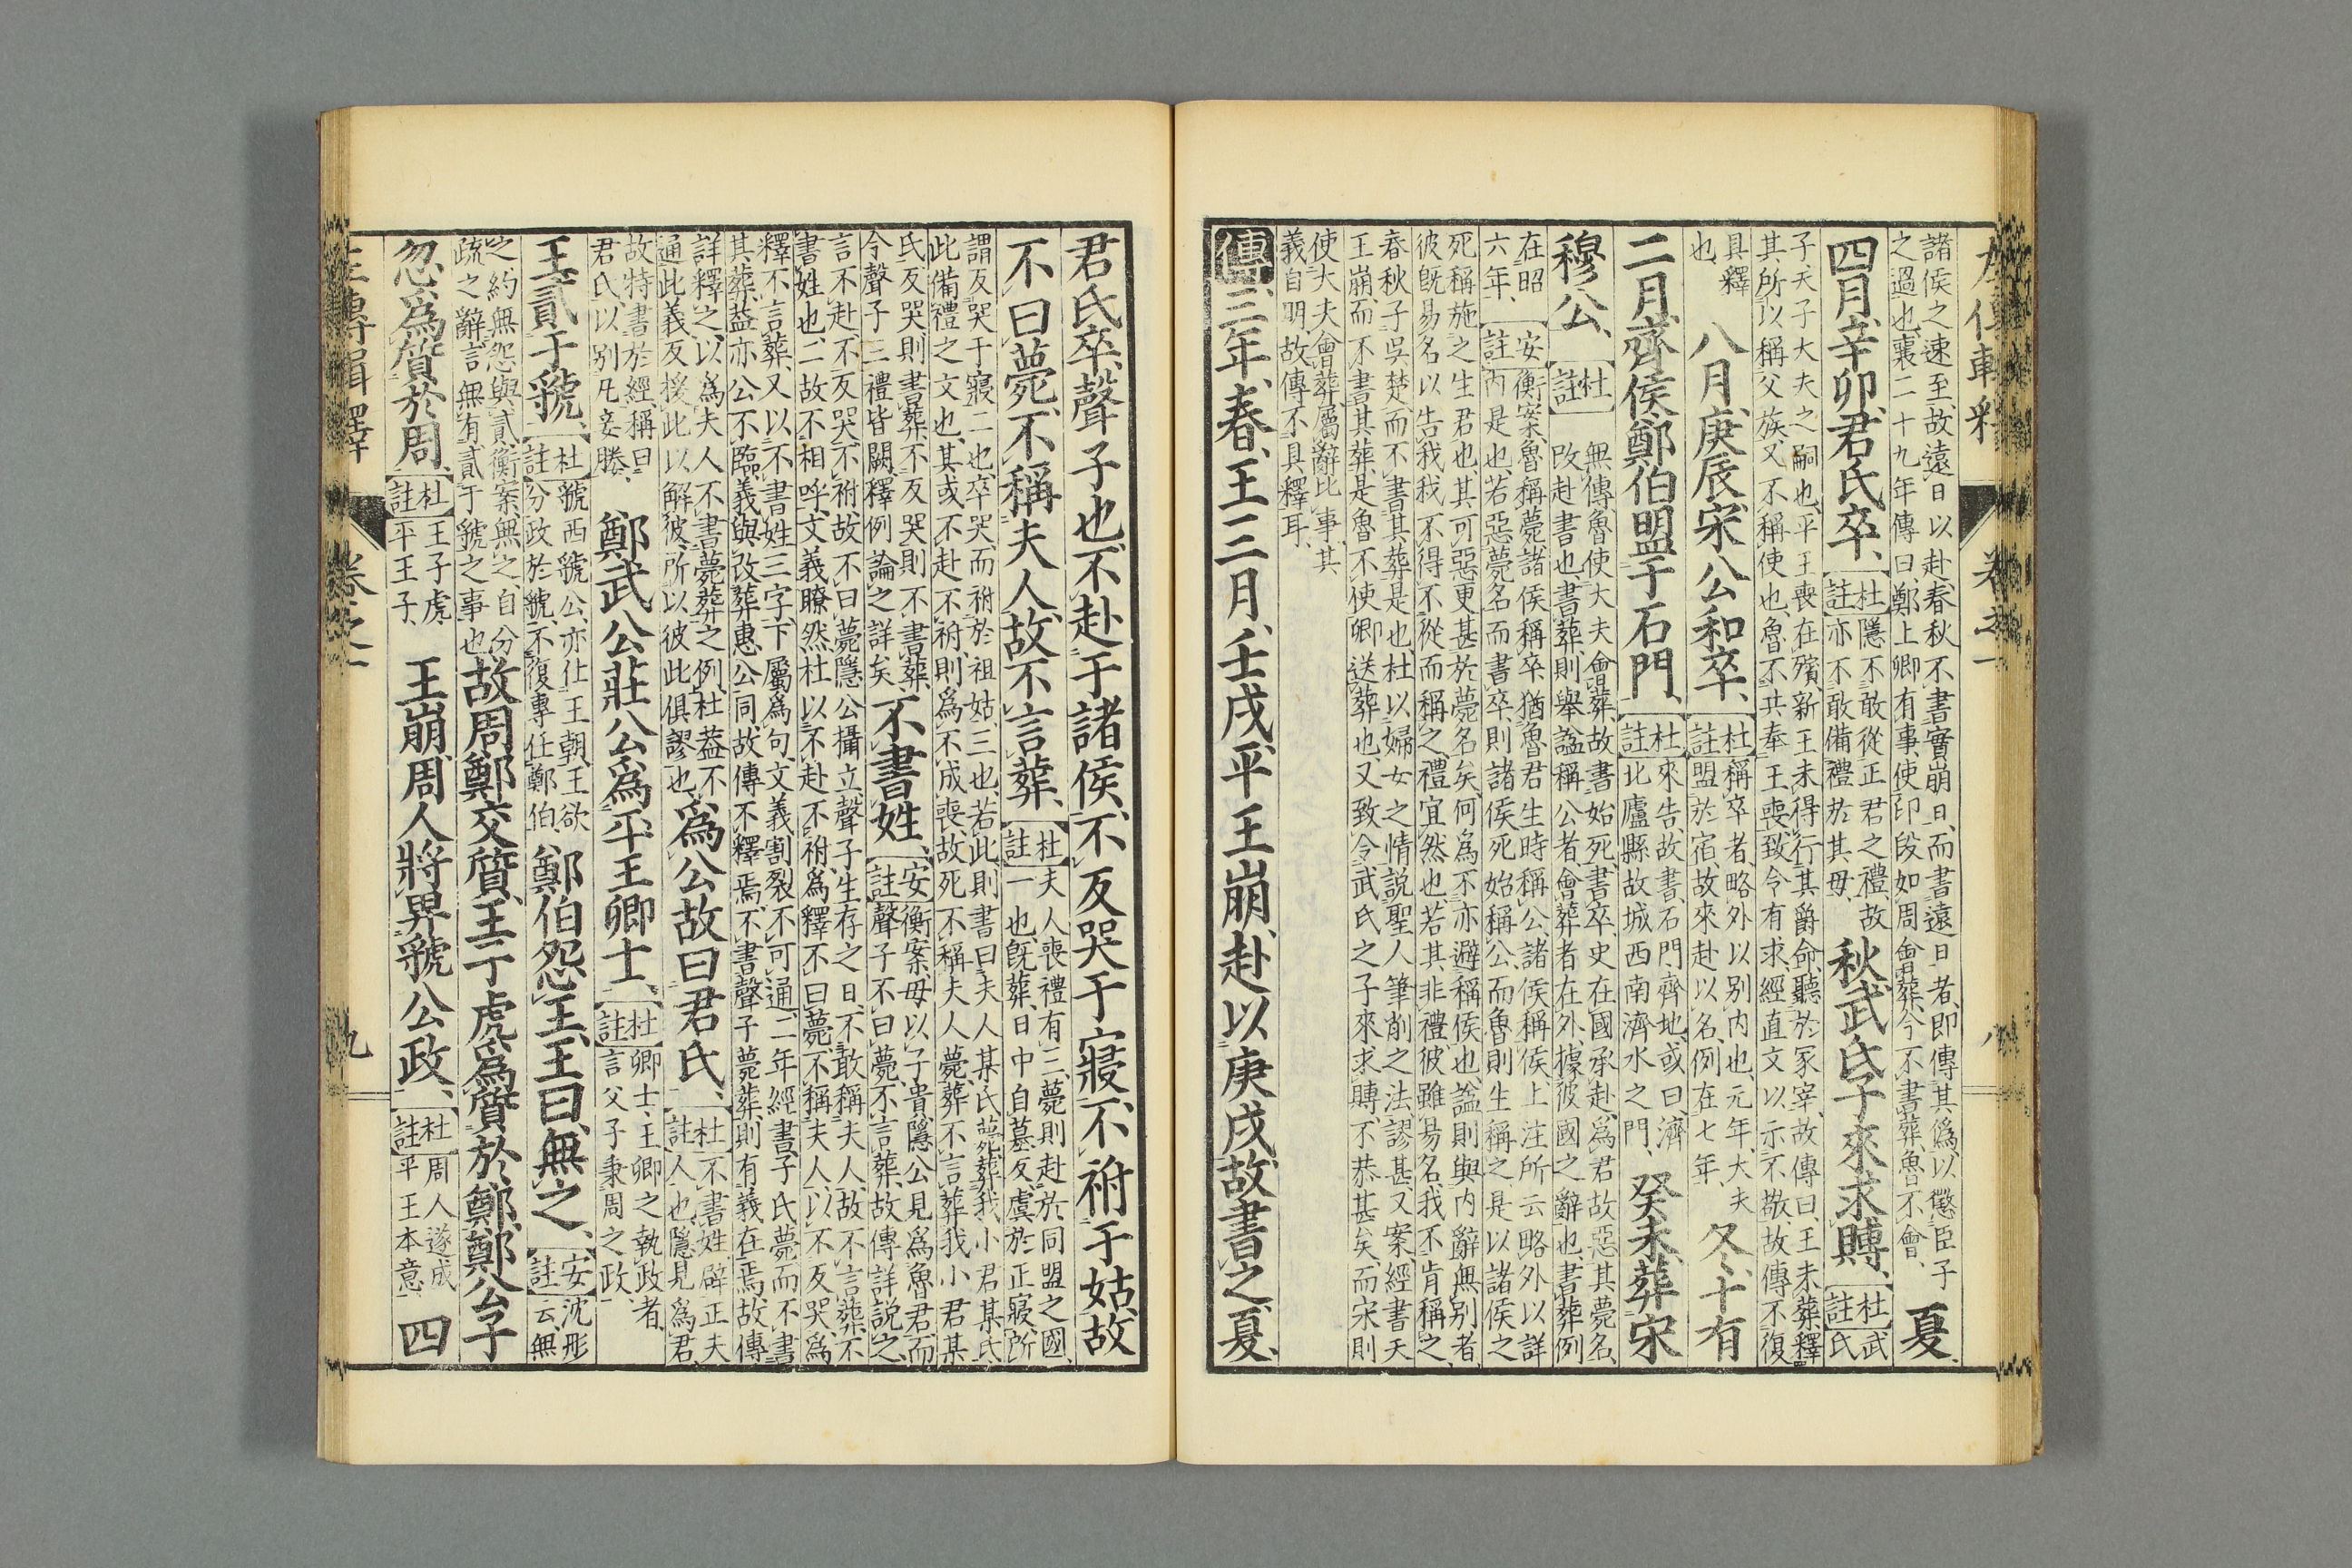 左傳輯釋 卷之一 八
諸侯之速至、故遠日以赴、春秋不書實崩日、而書遠日者、即傳其僞、以懲臣子
之過也、襄二十九年傳曰、鄭上卿有事、使印段如周會葬、今不書葬、魯不會、 夏、
四月、辛卯、君氏卒、 杜註 隱不敢從正君之禮、故
亦不敢備禮於其母、 秋、武氏子來求賻、 杜註 武
氏
子、天子大夫之嗣也、平王喪在殯、新王未得行其爵命、聽於冢宰、故傳曰、王未葬、釋
其所以稱父族、又不稱使也、魯不共奉王喪、致令有求、經直文以示不敬、故傳不復
具釋
也、 八月、庚辰、宋公和卒、 杜註 稱卒者、略外以別内也、元年、大夫
盟於宿、故來赴以名、例在七年、 冬、十有
二月、齊侯、鄭伯盟于石門、 杜註 來告、故書、石門、齊地、或曰、濟
北廬縣故城西南濟水之門、 癸未、葬宋
穆公、 杜註 無傳、魯使大夫會葬、故書、始死書卒、史在國承赴、爲君故、惡其薨名、
改赴書也、書葬則舉謚稱公者、會葬者在外、據彼國之辭也、書葬例
在昭
六年、 安註 衡案、魯稱薨、諸侯稱卒、猶魯君生時稱公、諸侯稱侯、上注所云略外以詳
内是也、若惡薨名而書卒、則諸侯死始稱公、而魯則生稱之、是以諸侯之
死稱施之生君也、其可惡更甚於薨名矣、何爲不亦避稱侯也、謚則與内辭無別者、
彼既易名以告我、我不得不從而稱之、禮宜然也、若其非禮、彼雖易名、我不肯稱之、
春秋子吳楚、而不書其葬是也、杜以婦女之情、説聖人筆削之法、謬甚、又案、經書天
王崩、而不書其葬、是魯不使卿送葬也、又致令武氏之子來求賻、不恭甚矣、而宋則
使大夫會葬、屬辭比事、其
義自明、故傳不具釋耳、
傳 三年、春、王三月、壬戌、平王崩、赴以庚戌、故書之、夏、
君氏卒、聲子也、不赴于諸侯、不反哭于寢、不祔于姑、故
不曰薨、不稱夫人、故不言葬、 杜註 夫人喪禮有三、薨則赴於同盟之國、
一也、既葬、日中自墓反、虞於正寢、所
謂反哭于寢、二也、卒哭而祔於祖姑、三也、若此則書曰夫人某氏薨、葬我小君某氏、
此備禮之文也、其或不赴不祔、則爲不成喪、故死不稱夫人薨、葬不言葬我小君某
氏、反哭則書葬、不反哭則不書葬、
今聲子三禮皆闕、釋例論之詳矣、 不書姓、 安註 衡案、毋以子貴、隱公見爲魯君、而
聲子不曰薨、不言葬、故傳詳説之、
言不赴、不反哭、不祔、故不曰薨、隱公攝立、聲子生存之日、不敢稱夫人、故不言葬、不
書姓也、二故不相呼、文義瞭然、杜以不赴、不祔、爲釋不曰薨、不稱夫人、以不反哭、爲
釋不言葬、又以不書姓三字、下屬爲句、文義割裂、不可通、二年經書子氏薨、而不書
其葬、葢亦公不臨、義與改葬惠公同、故傳不釋焉、不書聲子薨葬、則有義在焉、故傳
詳釋之、以爲夫人不書薨葬之例、杜葢不
通此義、反援此以解彼、所以彼此俱謬也、 爲公故、曰君氏、 杜註 不書姓、辟正夫
人也、隱見爲君、
故特書於經、稱曰
君氏、以別凡妾媵、 鄭武公、莊公、爲平王卿士、 杜註 卿士、王卿之執政者、
言父子秉周之政、
王貳于虢、 杜註 虢、西虢公、亦仕王朝、王欲
分政於虢、不復專任鄭伯、 鄭伯怨王、王曰、無之、 安註 沈彤
云、無
之、約無怨與貳、衡案、無之、自分
疏之辭、言無有貳于虢之事也、 故周鄭交質、王子虎爲質於鄭、鄭公子
忽爲質於周、 杜註 王子虎、
平王子、 王崩、周人將畀虢公政、 杜註 周人遂成
平王本意、 四
左傳輯釋 卷之一 九